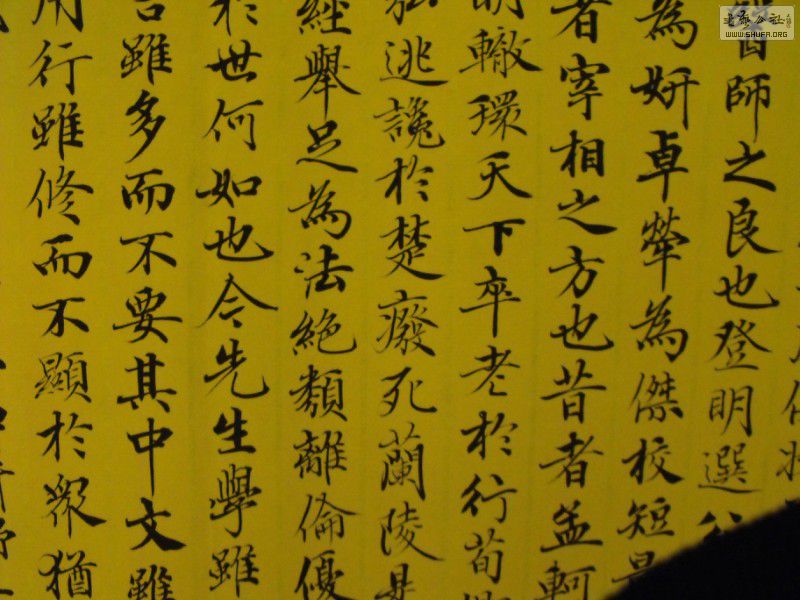 醫師之良也登明選公
為妍卓犖為傑校短
者宰相之方也昔者孟軻
明轍環天下卒老於行荀
弘逃讒於楚癈死蘭陵是
經舉足為法絕類離倫優
於世何如也今先生學雖
言雖多而不要其中文雖
用行雖修而不顯於眾猶
書法公社
WWW.SHUFA.ORG